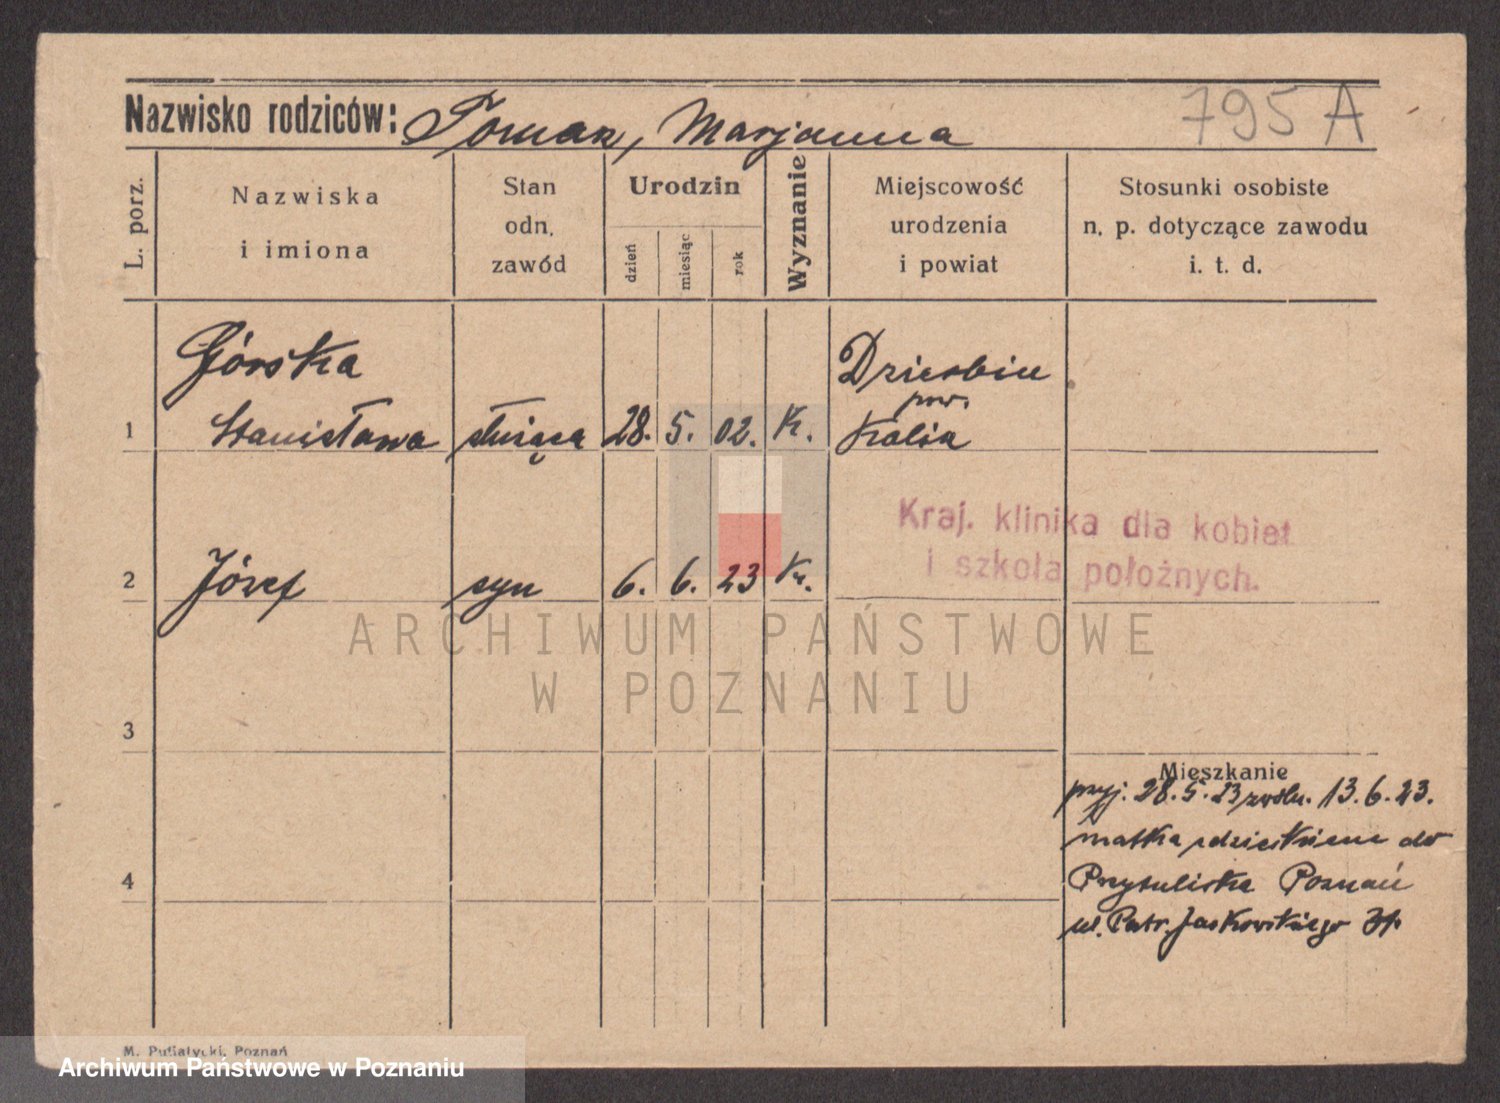 Nazwisko rodziców: Tomasz, Marjanna 795 A
L. porz.
Nazwiska
i imiona
Stan
odn.
zawód
Urodzin
dzień
miesiąc
rok
Wyznanie
Miejscowość
urodzenia
i powiat
Stosunki osobiste
n. p. dotyczące zawodu
i. t. d.
Górska Dzierbin
pow.
1 Stanisława służąca 28. 5. 02. K. Kalisz
Kraj. klinika dla kobiet
i szkoła położnych.
2 Józef syn 6. 6. 23 K.
ARCHIWUM PAŃSTWOWE
W POZNANIU
3
Mieszkanie
przyj. 28.5.23 zwoln. 13.6.23.
matka z dzieckiem do
4 Przytuliska Poznań
ul. Patr. Jackowskiego
M. Putiatycki, Poznań
Archiwum Państwowe w Poznaniu